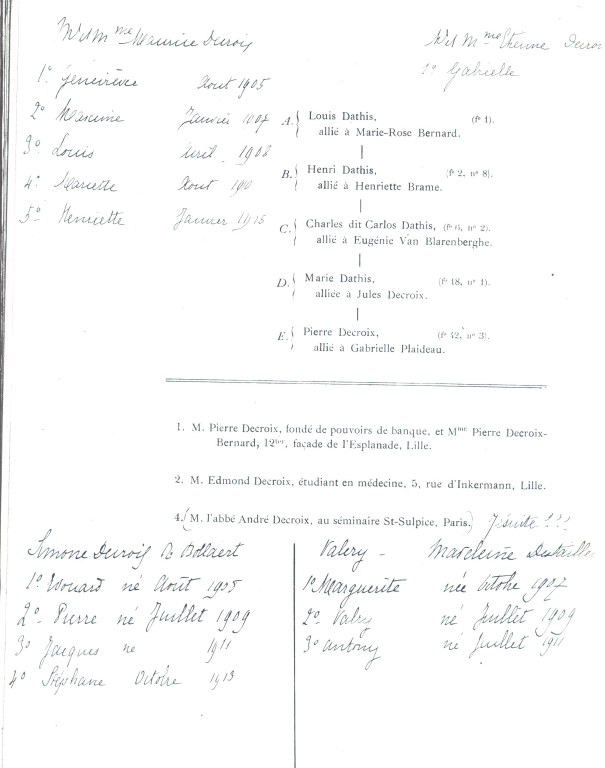 Mr et Mme Maurice Duroix
Mr et Mme Etienne
1° Gabrielle
1° Geneviève Aout 1905
2° Maxime Janvier 1907
3° Louis Avril 1908
4° Mariette Aout
5° Henriette Janvier 1915
A. Louis Dathis, (fº 1).
allié à Marie-Rose Bernard.
B. Henri Dathis, (fº 2, nº 8).
allié à Henriette Brame.
C. Charles dit Carlos Dathis, (fº 6, nº 2).
allié à Eugénie Van Blarenberghe.
D. Marie Dathis, (fº 18, nº 1).
alliée à Jules Decroix.
E. Pierre Decroix, (fº 42, nº 3).
allié à Gabrielle Plaideau.
1. M. Pierre Decroix, fondé de pouvoirs de banque, et Mme Pierre Decroix-
Bernard, 12ter, façade de l'Esplanade, Lille.
2. M. Edmond Decroix, étudiant en médecine, 5, rue d'Inkermann, Lille.
4. (M. l'abbé André Decroix, au séminaire St-Sulpice, Paris.) Jésuite !!!
Simone Bollaert
1° Edouard né Août 1905
2° Pierre né Juillet 1909
3° Jacques né 1911
4° Stéphane Octobre 1913
Valery - Madeleine
1° Marguerite née Octobre 1907
2° Valry né Juillet 1909
3° Antony né Juillet 1911